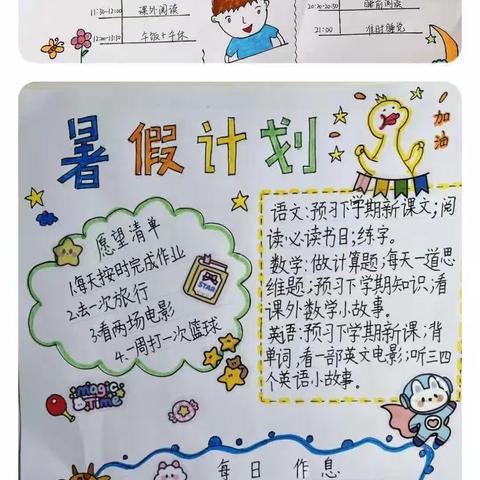 11:30-12:00 课外阅读
12:00-13:30 午饭+午休
20:20-20:50 睡前阅读
21:00 准时睡觉
暑假计划
加油
愿望清单
1.每天按时完成作业
2.去一次旅行
3.看两场电影
4.一周打一次篮球
STAR
magic
TIME
语文:预习下学期新课文;阅
读必读书目;练字。
数学:做计算题;每天一道思
维题;预习下学期知识;看
课外数学小故事。
英语:预习下学期新课;背
单词,看一部英文电影;听三四
个英语小故事。
每日作息